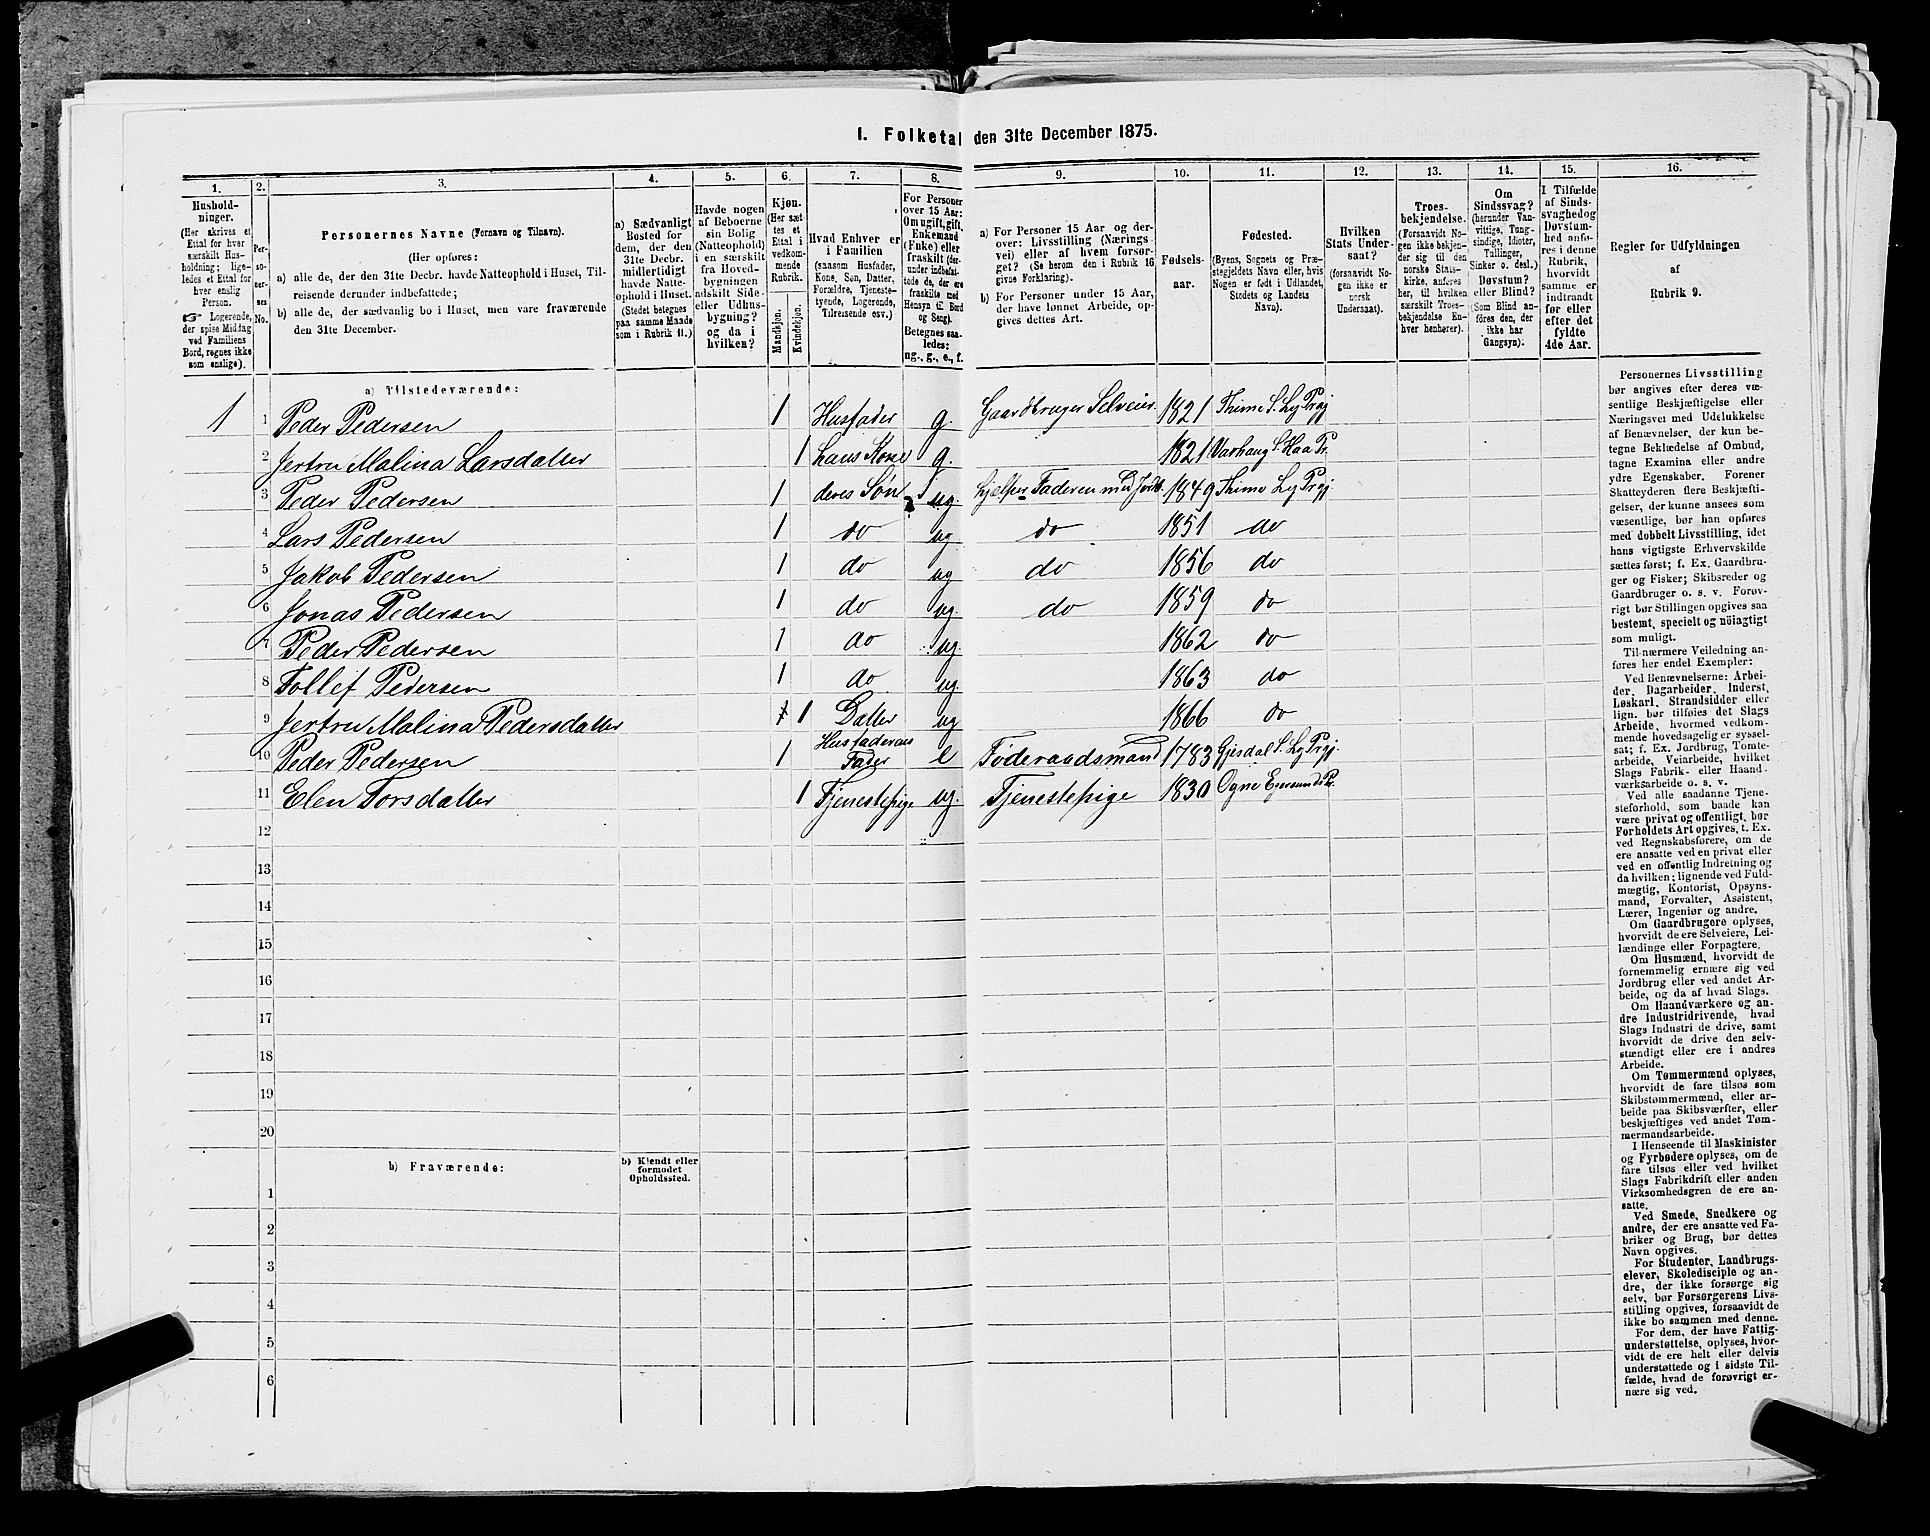 1. Folketal den 31te December 1875.
1.
2.
3.
4.
5.
6.
7.
8.
9.
10.
11.
12.
13.
14.
15.
16.
Hushold-
ninger.
(Her skrives et
Ettal for hver
særskilt Hus-
holdning; lige-
ledes et Ettal for
hver enslig
Person.
☞ Logerende,
der spise Middag
ved Familiens
Bord, regnes ikke
som enslige).
Per-
so-
ner-
nes
No.
Personernes Navne (Fornavn og Tilnavn).
(Her opføres:
a) alle de, der den 31te Decbr. havde Natteophold i Huset, Til-
reisende derunder indbefattede;
b) alle de, der sædvanlig bo i Huset, men vare fraværende
den 31te December.
a) Sædvanligt
Bosted for
dem, der den
31te Decbr.
midlertidigt
havde Natte-
ophold i Huset.
(Stedet betegnes
paa samme Maade
som i Rubrik 11.)
Havde nogen
af Beboerne
sin Bolig
(Natteophold)
i en særskilt
fra Hoved-
bygningen
adskilt Side-
eller Udhus-
bygning?
og da i
hvilken?
Kjøn.
(Her sæt-
tes et
Ettal i
vedkom-
mende
Rubrik.
Mandkjøn.
Kvindekjøn.
Hvad Enhver er
i Familien
(saasom Husfader,
Kone, Søn, Datter,
Forældre, Tjeneste-
tyende, Logerende,
Tilreisende osv.)
For Personer
over 15 Aar:
Om ugift, gift,
Enkemand
(Enke) eller
fraskilt (der-
under indbefat-
tede de, der ere
fraskilte med
Hensyn til Bord
og Seng).
Betegnes saa-
ledes:
ug., g., e., f.
a) For Personer 15 Aar og der-
over: Livsstilling (Nærings-
vei) eller af hvem forsør-
get? (Se herom den i Rubrik 16
givne Forklaring).
b) For Personer under 15 Aar,
der have lønnet Arbeide, op-
gives dettes Art.
Fødsels-
aar.
Fødested.
(Byens, Sognets og Præ-
stegjeldets Navn eller, hvis
Nogen er født i Udlandet,
Stedets og Landets
Navn).
Hvilken
Stats Under-
saat?
(forsaavidt No-
gen ikke er
norsk
Undersaat).
Troes-
bekjendelse.
(Forsaavidt No-
gen ikke bekjen-
der sig til den
norske Stats-
kirke, anføres
her, til hvilken
særskilt Troes-
bekjendelse En-
hver henhører).
Om
Sindssvag?
(herunder Van-
vittige, Tung-
sindige, Idioter,
Tullinger,
Sinker o. desl.)
Døvstum?
eller Blind?
(Som Blind an-
føres den, der
ikke har
Gangsyn).
I Tilfælde
af Sinds-
svaghed og
Døvstum-
hed anfø-
res i denne
Rubrik,
hvorvidt
samme er
indtraadt
før eller
efter det
fyldte
4de Aar.
Regler for Udfyldningen
af
Rubrik 9.
a) Tilstedeværende:
1 1 Peder Pedersen 1 Husfader g. Gaardbruger Selveier. 1821 Thime S. Ly Prgj
2 Jertru Malina Larsdatter 1 hans Kone g. 1821 Varhaug S. Haa Pr.
3 Peder Pedersen 1 deres Søn ug. hjelper Faderen med Jordb. 1849 Thime Ly Prgj.
4 Lars Pedersen 1 do ug do 1851 do
5 Jakob Pedersen 1 do ug do 1856 do
6 Jonas Pedersen 1 do ug do 1859 do
7 Peder Pedersen 1 do ug. 1862 do
8 Tollef Pedersen 1 do ug. 1863 do
9 Jertru Malina Pedersdatter 1 1 Datter ug 1866 do
10 Peder Pedersen 1 Husfaderens Fader e Føderaadsmand 1783 Gjesdal S. Ly Prgj.
11 Elen Torsdatter 1 Tjenestepige ug. Tjenestepige 1830 Ogne Egersunds Pr.
12
13
14
15
16
17
18
19
20
b) Fraværende:
b) Kjendt eller
formodet
Opholdssted.
1
2
3
4
5
6
Personernes Livsstilling
bør angives efter deres væ-
sentlige Beskjæftigelse eller
Næringsvei med Udelukkelse
af Benævnelser, der kun be-
tegne Beklædelse af Ombud,
tagne Examina eller andre
ydre Egenskaber. Forener
Skatteyderen flere Beskjæfti-
gelser, der kunne ansees som
væsentlige, bør han opføres
med dobbelt Livsstilling, idet
hans vigtigste Erhvervskilde
sættes først; f. Ex. Gaardbru-
ger og Fisker; Skibsreder og
Gaardbruger o. s. v. Forøv-
rigt bør Stillingen opgives saa
bestemt, specielt og nøiagtigt
som muligt.
Til nærmere Veiledning an-
føres her endel Exempler:
Ved Benævnelserne: Arbei-
der, Dagarbeider, Inderst,
Løskarl, Strandsidder eller
lign. bør tilføies det Slags
Arbeide, hvormed vedkom-
mende hovedsagelig er syssel-
sat; f. Ex. Jordbrug, Tomte-
arbeide, Veiarbeide, hvilket
Slags Fabrik- eller Haand-
værksarbeide o. s. v.
Ved alle saadanne Tjene-
steforhold, som baade kan
være privat og offentligt, bør
Forholdets Art opgives, t. Ex.
ved Regnskabsførere, om de
ere ansatte ved en privat eller
ved en offentlig Indretning og
da hvilken; lignende ved Fuld-
mægtig, Kontorist, Opsyns-
mand, Forvalter, Assistent,
Lærer, Ingeniør og andre.
Om Gaardbrugere oplyses,
hvorvidt de ere Selveiere, Lei-
lændinge eller Forpagtere.
Om Husmænd, hvorvidt de
fornemmelig ernære sig ved
Jordbrug eller ved andet Ar-
beide, og da af hvad Slags.
Om Haandværkere og an-
dre Industridrivende, hvad
Slags Industri de drive, samt
hvorvidt de drive den selv-
stændigt eller ere i andres
Arbeide.
Om Tømmermænd oplyses,
hvorvidt de fare tilsøs som
Skibstømmermænd, eller ar-
beide paa Skibsværfter, eller
beskjæftiges ved andet Tøm-
mermandsarbeide.
I Henseende til Maskinister
og Fyrbødere oplyses, om de
fare tilsøs eller ved hvilket
Slags Fabrikdrift eller anden
Virksomhedsgren de ere an-
satte.
Ved Smede, Snedkere og
andre, der ere ansatte ved Fa-
briker og Brug, bør dettes
Navn opgives.
For Studenter, Landbrugs-
elever, Skoledisciple og an-
dre, der ikke forsørge sig
selv, bør Forsørgerens Livs-
stilling opgives, forsaavidt de
ikke bo sammen med denne.
For dem, der have Fattig-
understøttelse, oplyses, hvor-
vidt de ere helt eller delvis
understøttede og i sidste Til-
fælde, hvad de forøvrigt er-
nære sig ved.